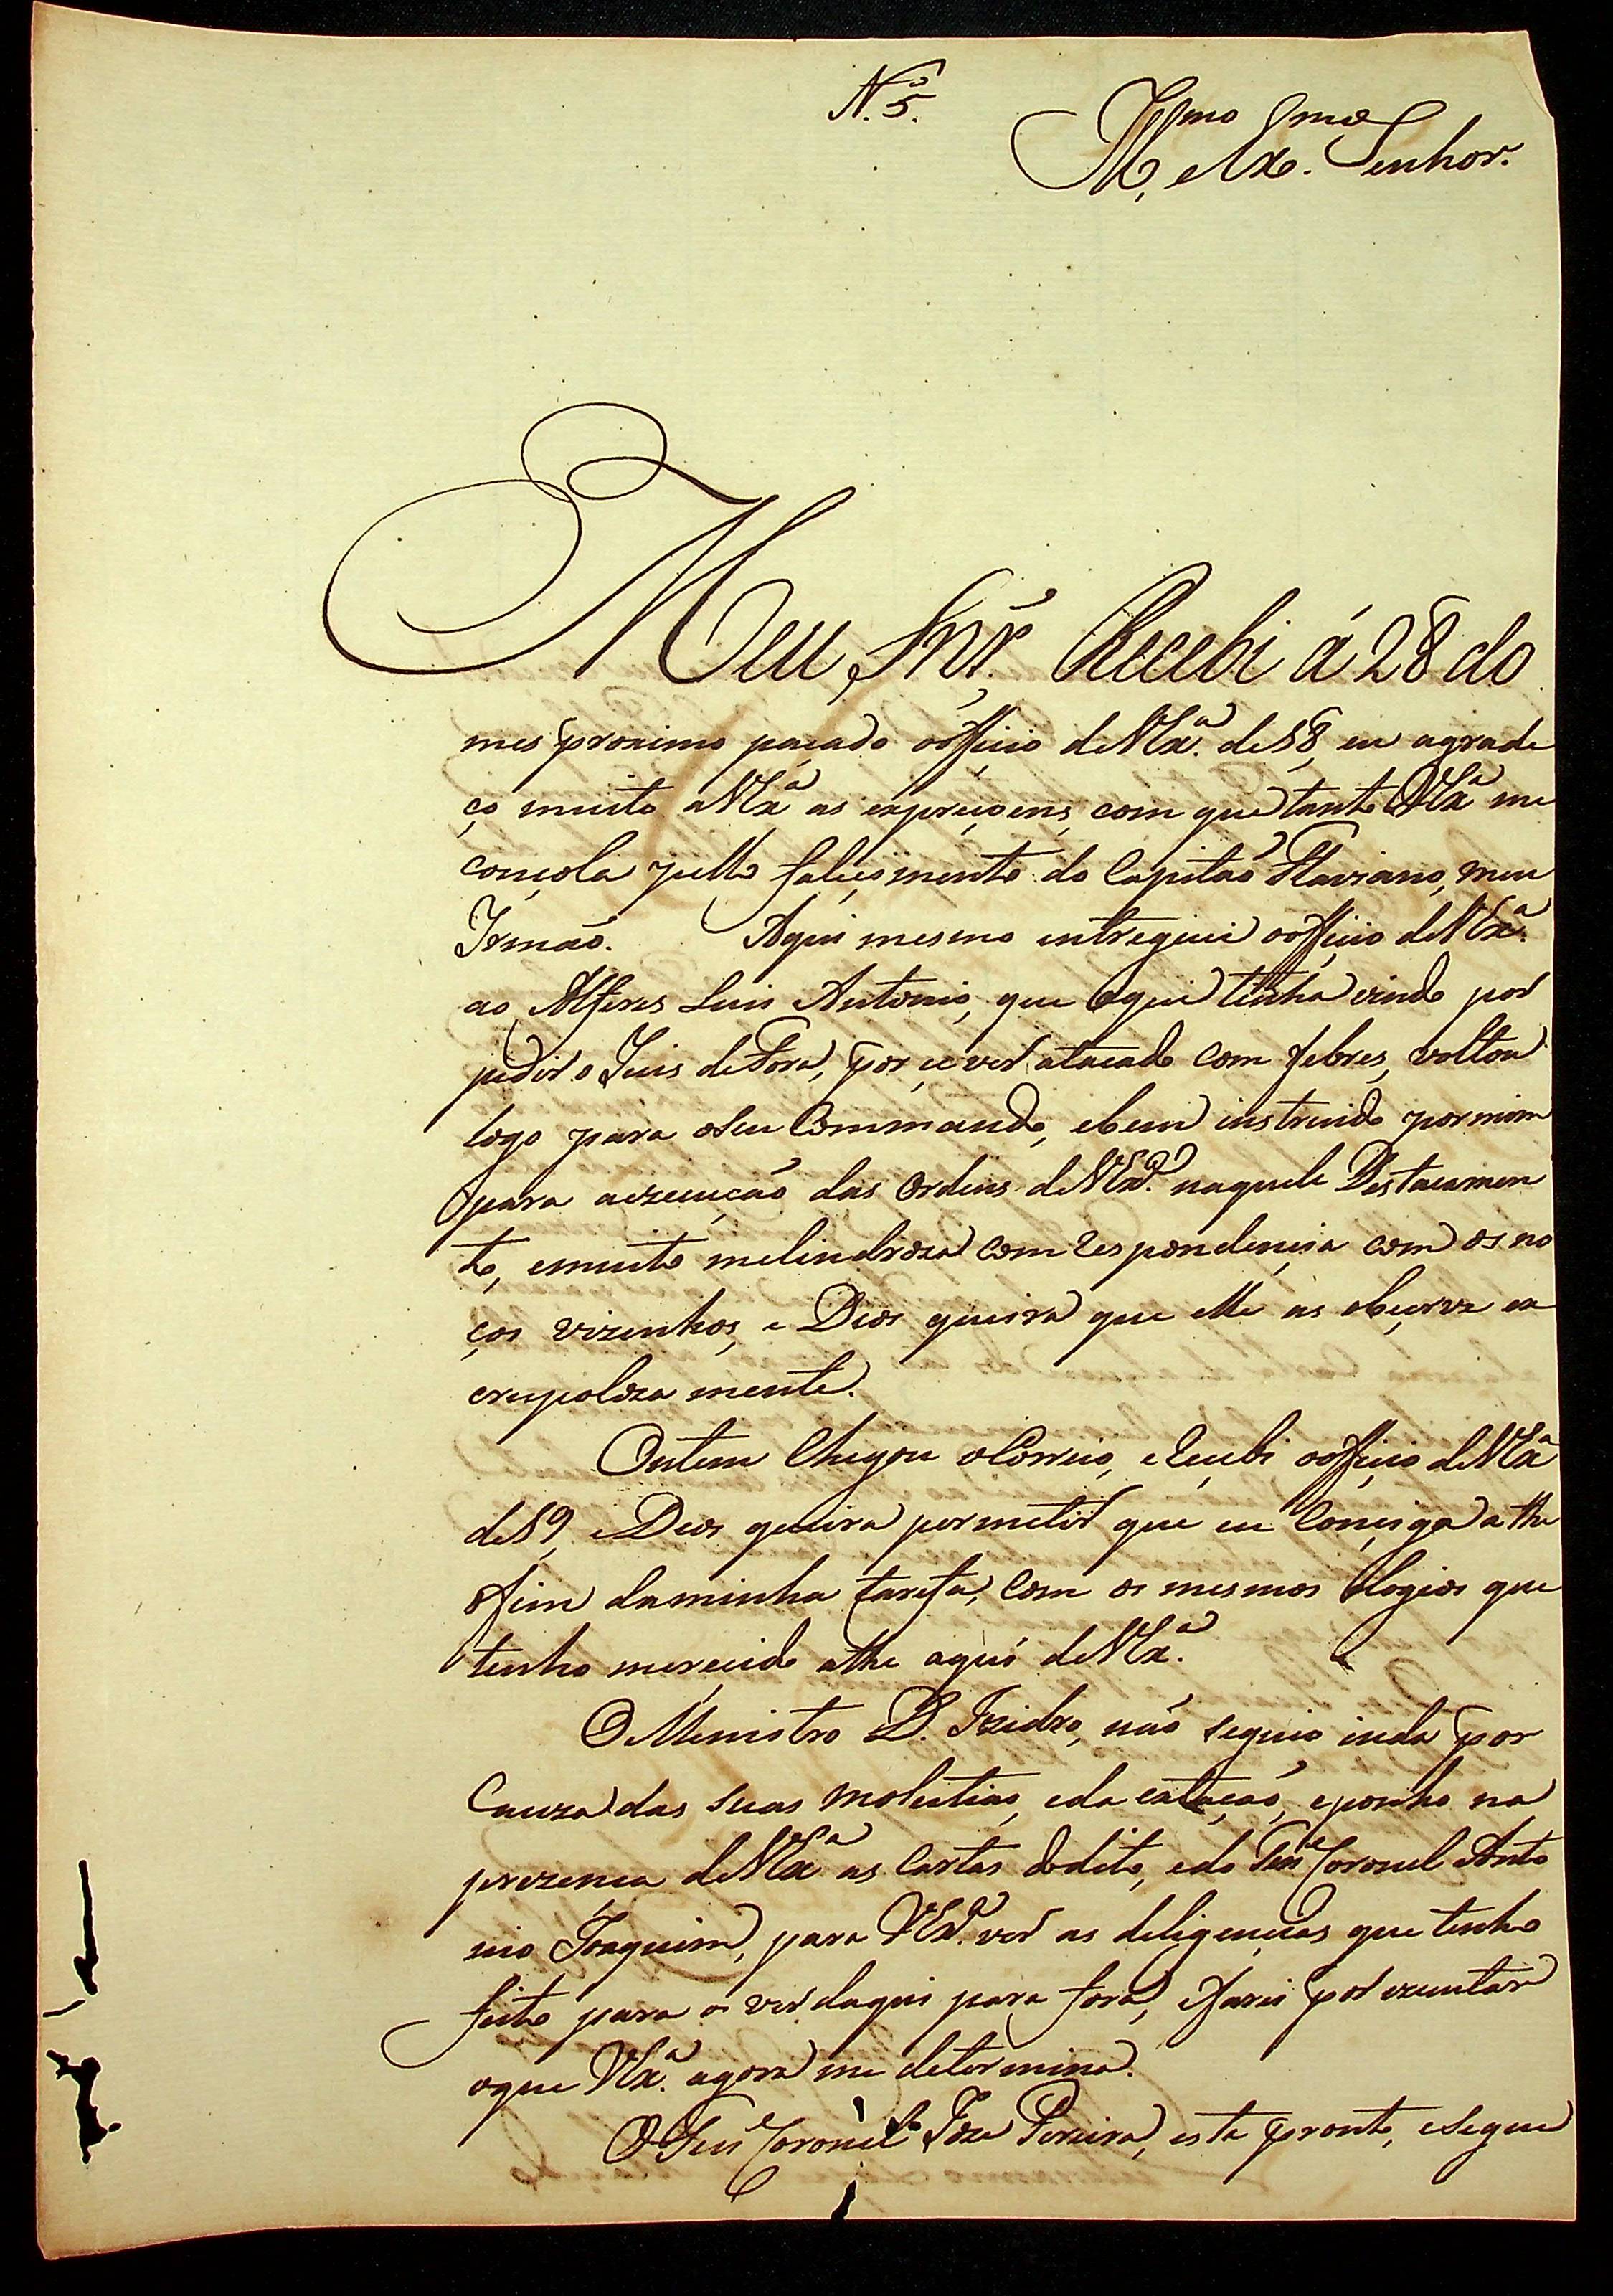 N.º 5.
Ill.mo e Ex.mo Senhor.
Meu Snr. Recebi á 28 do
mes proximo paçado o officio de VEx.ª de 18, eu agrade
ço muito a VEx.ª as expreçoens, com que tanto VEx.ª me
conçola pello faleçimento do Capitaõ Flaviano, meu
Irmaõ. Aqui mesmo entreguei o officio de VEx.ª
ao Alferes Luis Antonio, que aqui tinha vindo por
pedir o Juis de Fora, por çe ver atacado com febres, voltou
logo para o seu Commando, e bem instruido por mim
para a ezecuçaõ das Ordens de VEx.ª naquele Destacamen
to, e muito melindroza Comrespondençia com os no
ços vizinhos, e Deos queira que elle as obçerve es
crupoloza mente.
Ontem Chegou o Correio, e Reçebi o officio de VEx.ª
de 19, e Deos queira permetir que eu Conçiga athe
o fim da minha tarefa, com os mesmos elogios que
tenho mereçido athe aqui de VEx.ª
O Menistro D. Izidro, naõ seguio inda por
Cauza das suas molestias, e da estaçaõ, e ponho na
prezença de VEx.ª as Cartas do dito, e do Ten.e Coronel Anto
nio Joaquim, para VEx.ª ver as deligençias que tenho
feito para o ver daqui para fora, e farei por ezecutar
o que VEx.ª agora me determina.
O Ten.e Coronel Joze Pereira, esta pronto, e segue